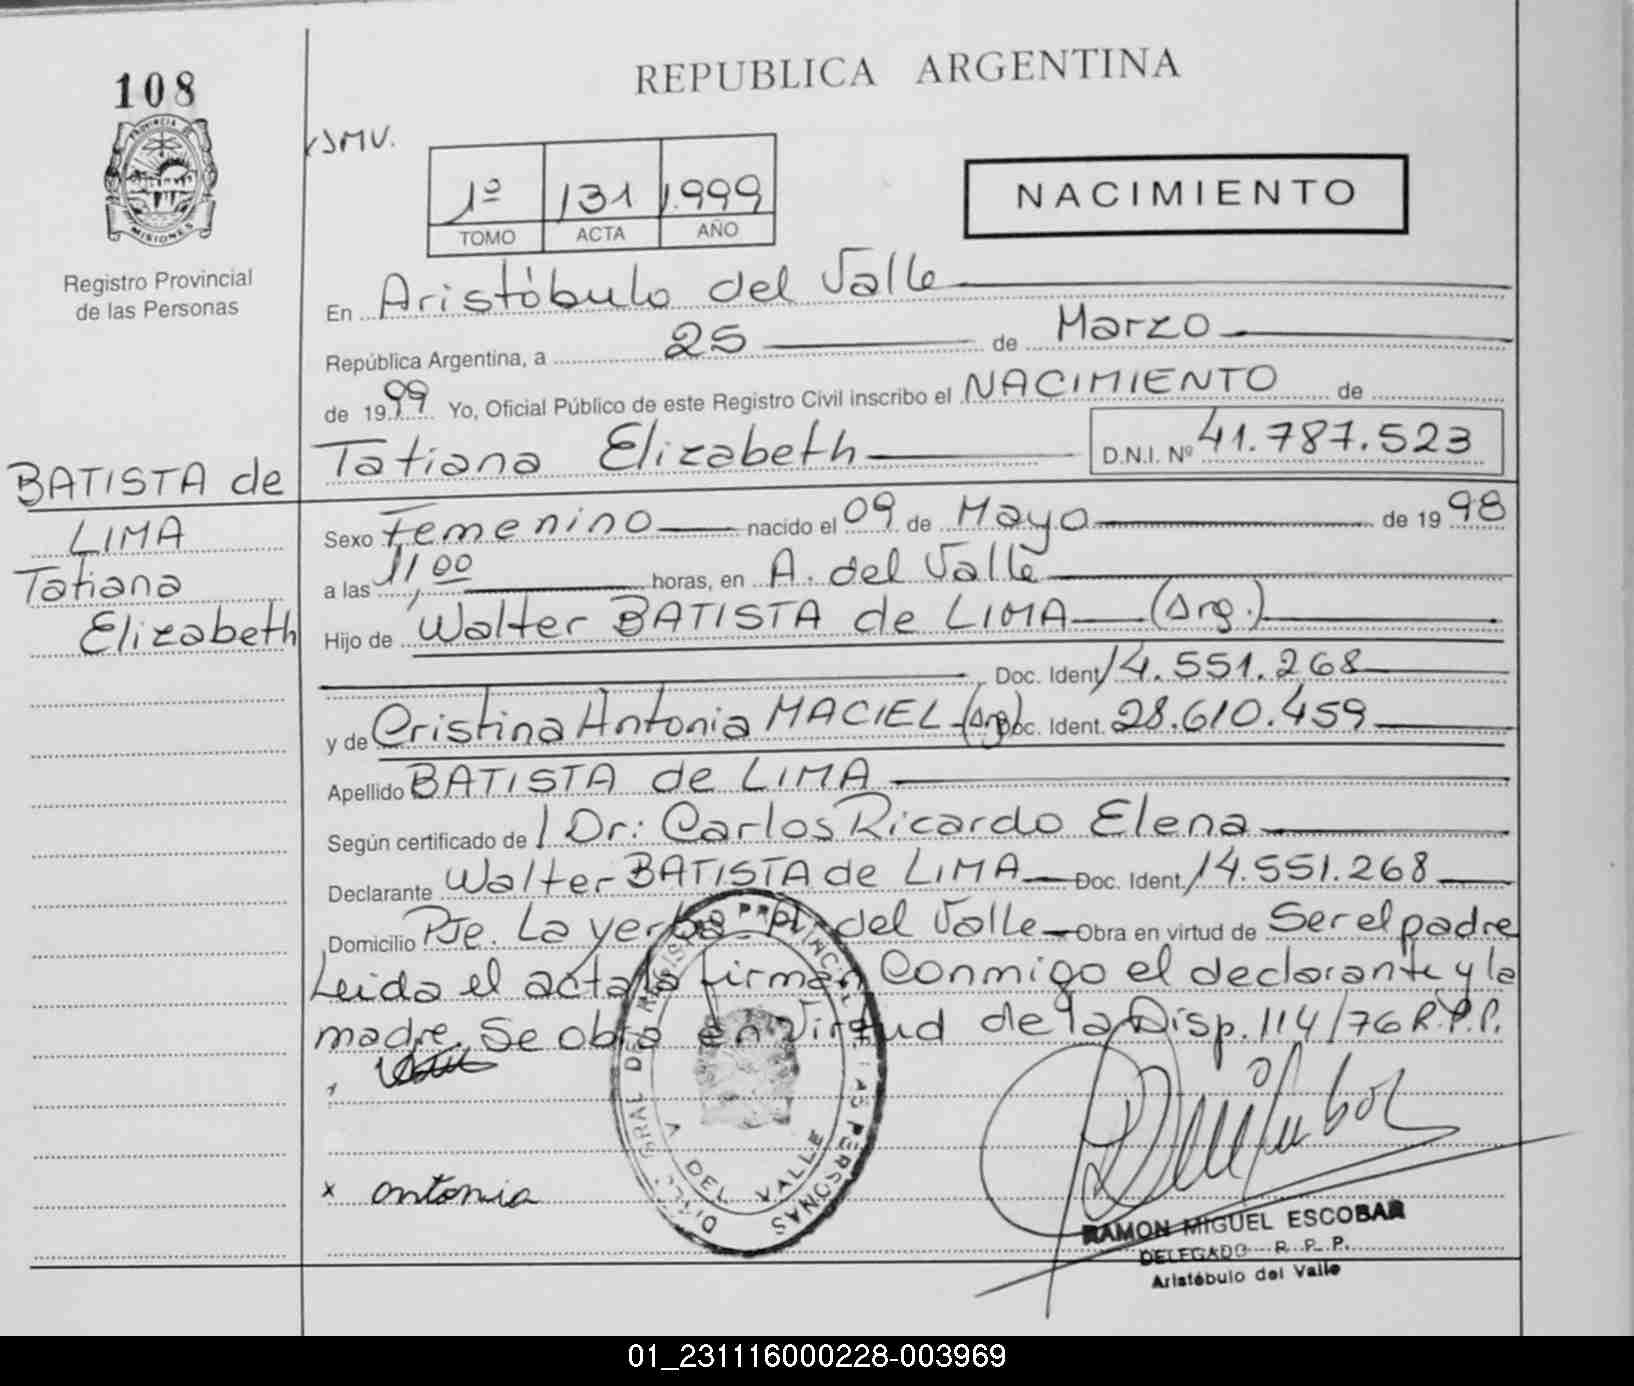 108
REPUBLICA ARGENTINA
PROVINCIA DE
MISIONES
JMV.
1º 131 1.999
TOMO ACTA AÑO
NACIMIENTO
Registro Provincial
de las Personas
En Aristóbulo del Valle
República Argentina, a 25 de Marzo
de 1999 Yo, Oficial Público de este Registro Civil inscribo el NACIMIENTO de
Tatiana Elizabeth D.N.I. Nº 41.787.523
BATISTA de
LIMA
Tatiana
Elizabeth
Sexo Femenino nacido el 09 de Mayo de 1998
a las 11,00 horas, en A. del Valle
Hijo de Walter BATISTA de LIMA (Arg.)
Doc. Ident 14.551.268
y de Cristina Antonia MACIEL (Arg) Doc. Ident. 28.610.459
Apellido BATISTA de LIMA
Según certificado de Dr: Carlos Ricardo Elena
Declarante Walter BATISTA de LIMA Doc. Ident 14.551.268
Domicilio Pje. La yerba del Valle Obra en virtud de Ser el padre
Leida el acta la firman Conmigo el declarante y la
madre. Se obra en virtud de la Disp. 114/76 R.P.P.
x antonia
A DEL VALLE
RAMON MIGUEL ESCOBAR
DELEGADO R. P. P.
Aristóbulo del Valle
01_231116000228-003969